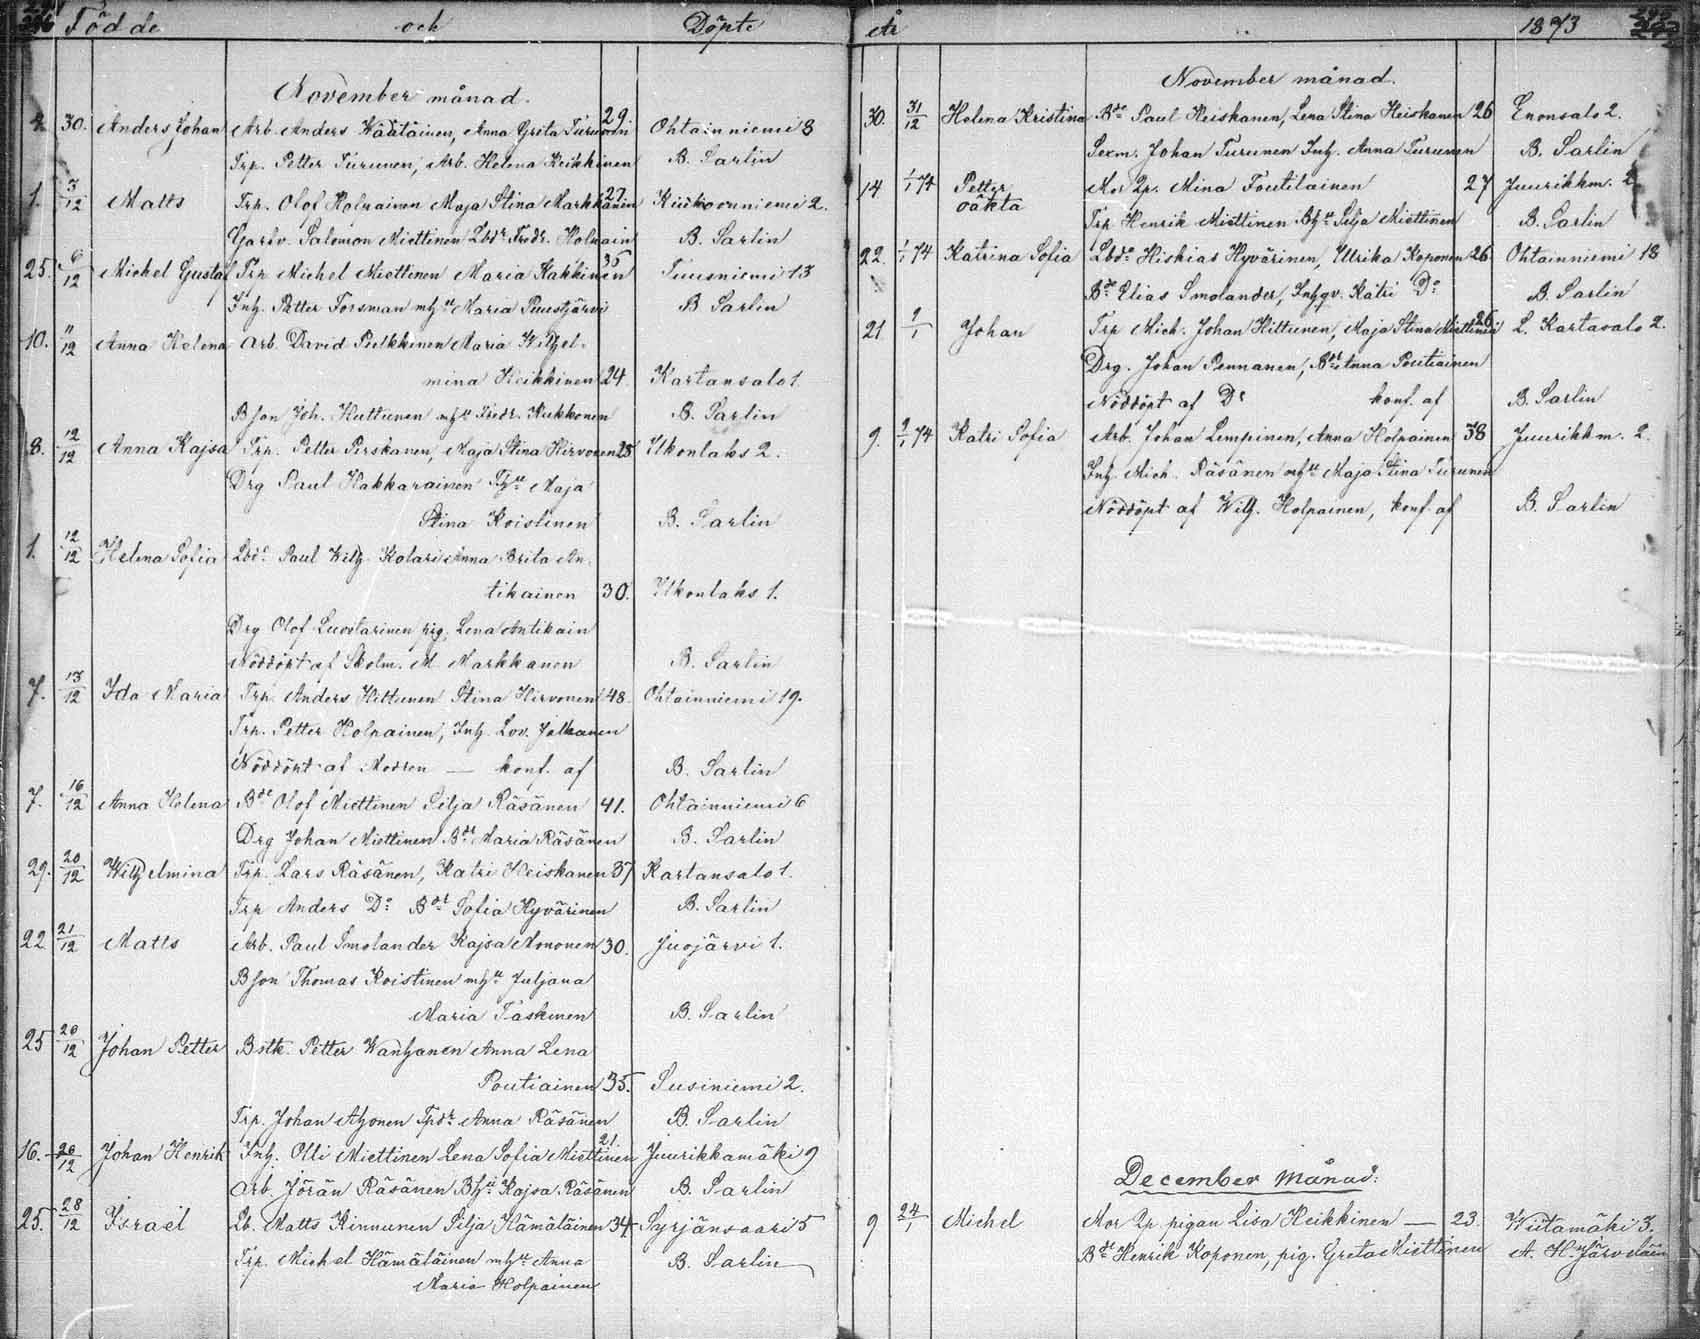 Födde och Döpte
November månad.
4. 30. Anders Johan Arb. Anders Väätäinen, Anna Grita Turunen 29. Ohtainniemi 8
Trp. Petter Turunen, Arb. Helena Heikkinen B. Sarlin
1. 3/12 Matts Trp. Olof Holpainen Maja Stina Markkanen 27. Kiukoonniemi 2.
Garfv. Salomon Miettinen Lbdr Fredr. Holpain B. Sarlin
25. 6/12 Michel Gustaf Trp. Michel Miettinen Maria Kakkinen 35 Tuusniemi 13
Inh. Petter Forsman mhu Maria Puustjärvi B. Sarlin
10. 11/12 Anna Helena Arb. David Pulkkinen Maria Vilhel-
mina Heikkinen 24. Kartansalo 1.
Bson Joh. Huttunen mhu Fredr. Kukkonen B. Sarlin
8. 12/12 Anna Kajsa Trp. Petter Pirskanen, Maja Stina Hirvonen 28 Ukonlaks 2.
Drg Paul Hakkarainen Thu Maja
Stina Koistinen B. Sarlin
1. 12/12 Helena Sofia Lbdo Paul Wilh. Kolari Anna Brita An-
tikainen 30. Ukonlaks 1.
Drg Olof Luostarinen pig. Lena Antikain
Nöddöpt af Skolm. M. Markkanen B. Sarlin
7. 13/12 Ida Maria Trp. Anders Hiltunen Stina Hirvonen 48. Ohtainniemi 19.
Trp. Petter Holpainen, Inh. Lov. Jalkanen
Nöddöpt af Modren — konf. af B. Sarlin
7. 16/12 Anna Helena Bde Olof Miettinen Silja Räsänen 41. Ohtainniemi 6
Drg Johan Miettinen Bdr Maria Räsänen B. Sarlin
29. 20/12 Wilhelmina Trp. Lars Räsänen, Katri Heiskanen 37 Kartansalo 1.
Trp Anders Do Bdt Sofia Hyvärinen B. Sarlin
22 21/12 Matts Arb. Paul Smolander Kajsa Mononen 30. Juojärvi 1.
Bson Thomas Koistinen mhu Juljana
Maria Taskinen B. Sarlin
25 20/12 Johan Petter Bstk. Petter Vanhanen Anna Lena
Poutiainen 35. Susiniemi 2.
Trp. Johan Ahonen Tpdr Anna Räsänen B. Sarlin
16. 20/12 Johan Henrik Inh. Olli Miettinen Lena Sofia Miettinen 21. Juurikkamäki 9
Arb. Jöran Räsänen Bhu Kajsa Räsänen B. Sarlin
25. 28/12 Israel Lb. Matts Kinnunen Silja Hämäläinen 34 Syrjänsaari 5
Trp. Michel Hämäläinen mhu Anna B. Sarlin
Maria Holpainen
År 1873
November månad.
30. 31/12 Helena Kristina Bde Paul Heiskanen, Lena Stina Heiskanen 26 Enonsalo 2.
Sexm. Johan Turunen Inh. Anna Turunen B. Sarlin
14 1/1 74 Petter Mor Lp. Mina Foutilainen 27 Juurikkm. 2
oäkta
Trp Henrik Miettinen Bhu Silja Miettinen B. Sarlin
22. 1/1 74 Katrina Sofia Lbdo Hiskias Hyvärinen, Ulrika Koponen 26. Ohtainniemi 18
Bde Elias Smolander, Inhgv. Katri Do B. Sarlin
21. 2/1 Johan Trp Mich. Johan Hiltunen, Maja Stina Miettinen 26 L. Kartasalo 2.
Drg. Johan Pennanen, Bdt Anna Poutiainen
Nöddöpt af Do konf. af B. Sarlin
9. 2/1 74 Katri Sofia Arb. Johan Lempinen, Anna Holpainen 38 Juurikkm. 2.
Inh. Mich. Räsänen mhu Maja Stina Turunen
Nöddöpt af Wilh. Holpainen, konf. af B. Sarlin
December månad:
9 24/1 Michel Mor Lp. pigan Lisa Heikkinen — 23. Wiitamäki 3.
Bde Henrik Koponen, pig. Greta Miettinen A. H. Järveläin